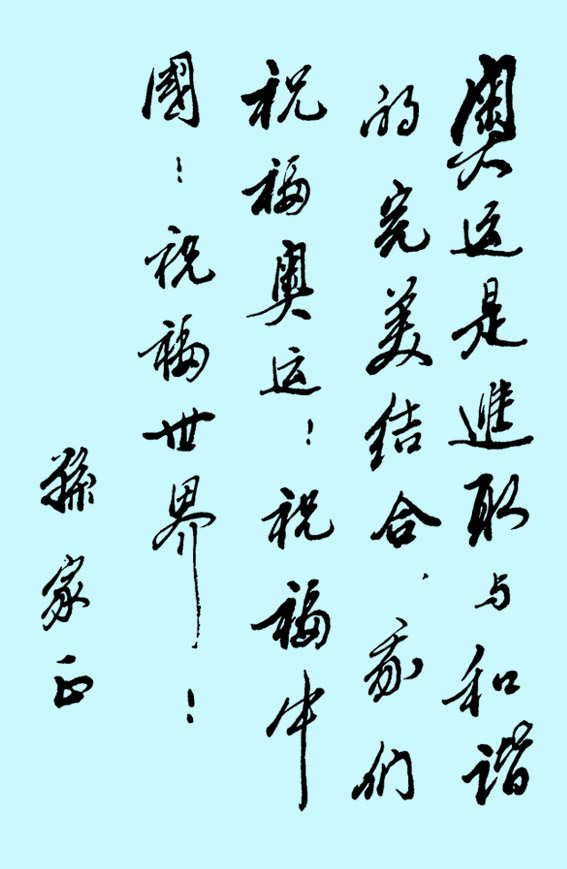 奥运是進取与和谐
的完美结合.我们
祝福奥运！祝福中
國！祝福世界！
孫家正